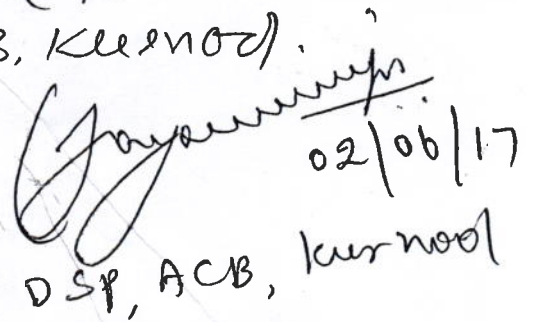 , Kurnool.
02/06/17
DSP, ACB, Kurnool